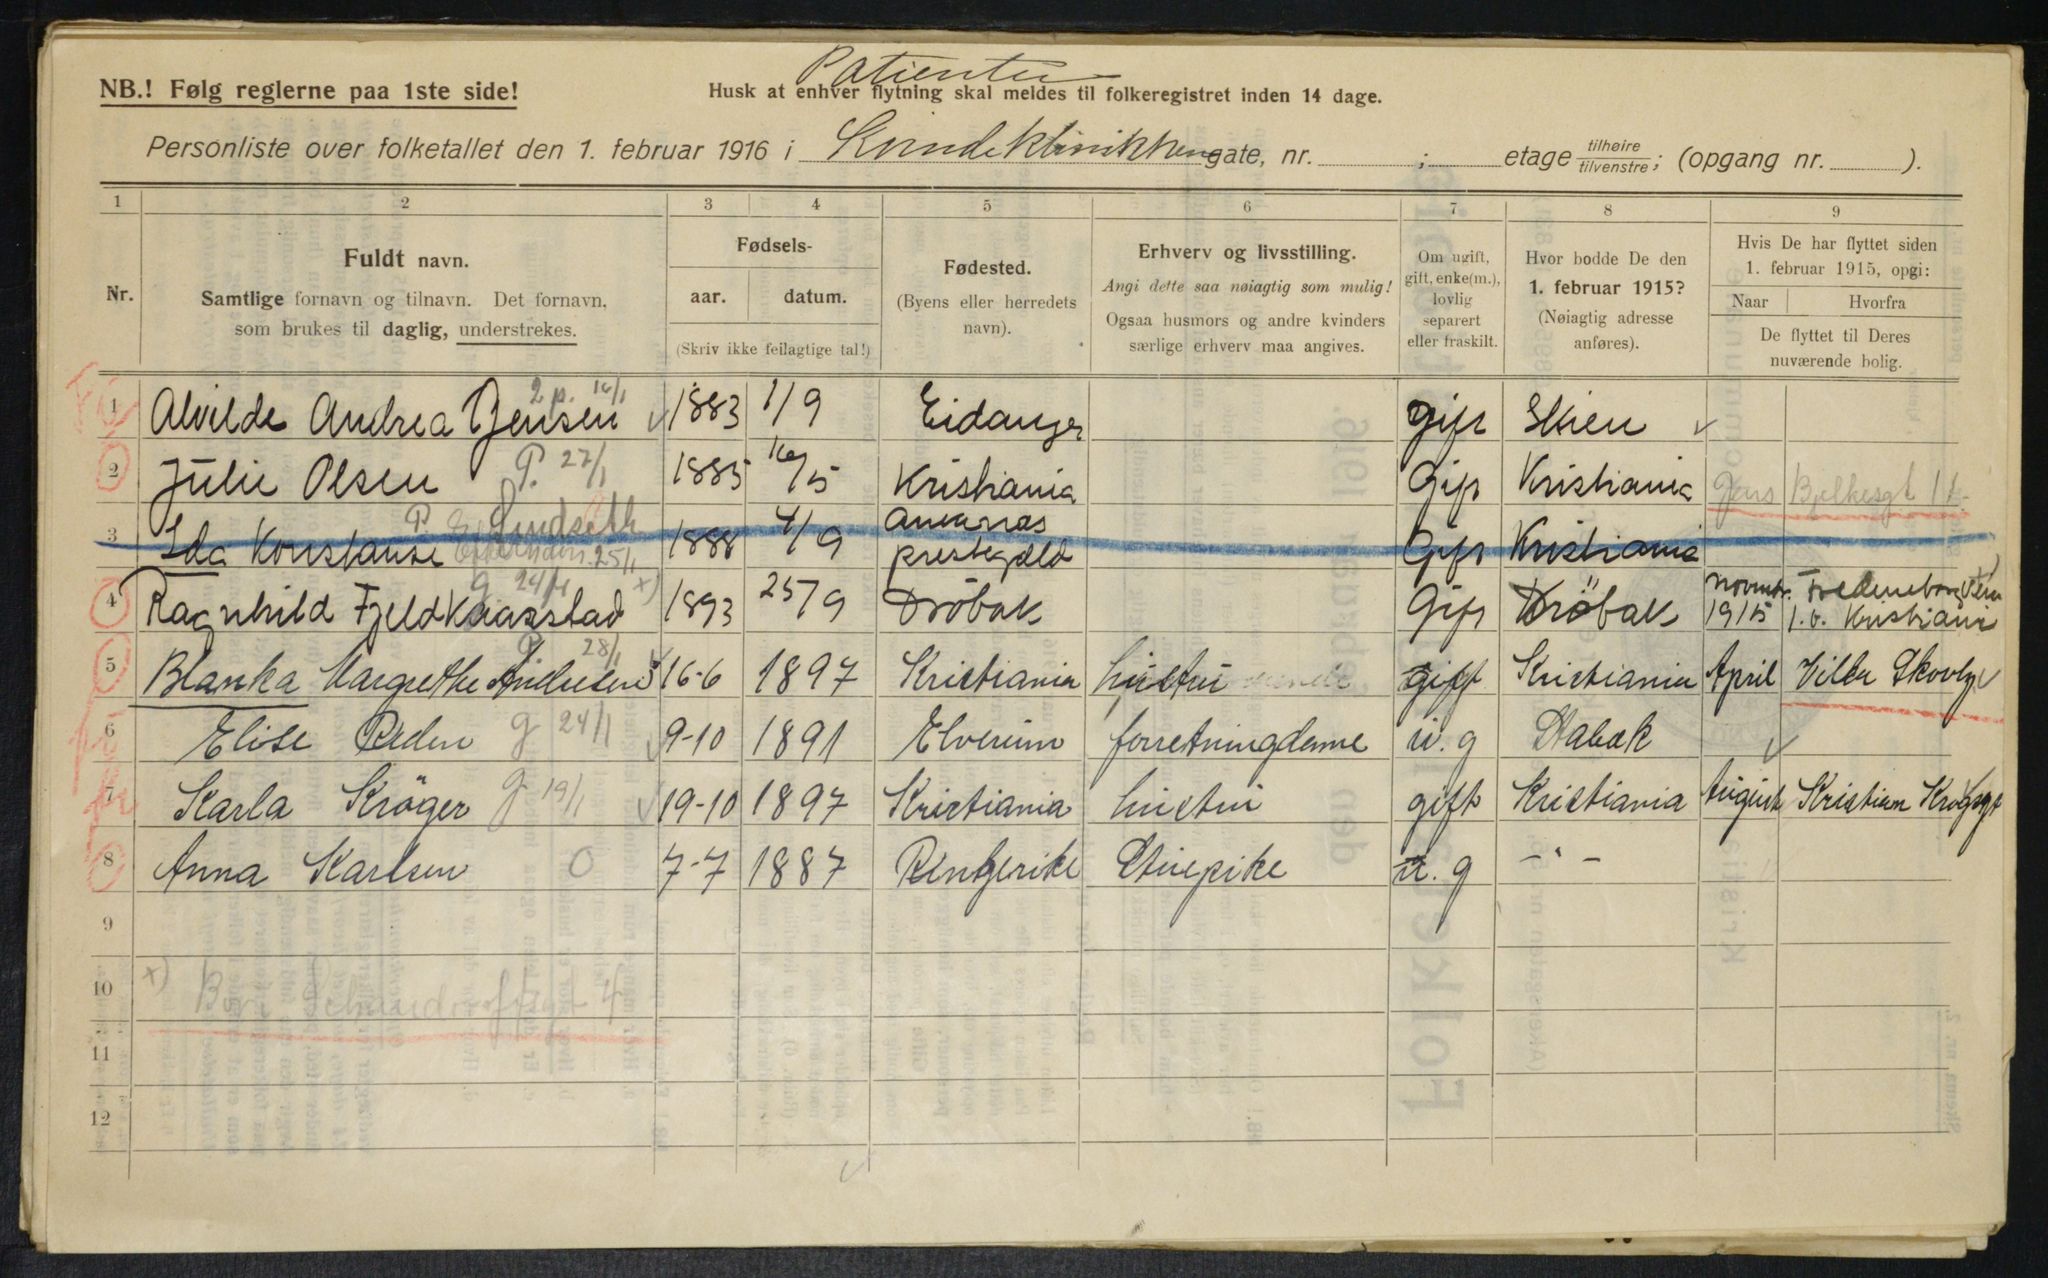 Patienter
NB.! Følg reglerne paa 1ste side!
Husk at enhver flytning skal meldes til folkeregistret inden 14 dage.
Personliste over folketallet den 1. februar 1916 i Kvindeklinikken gate, nr. ; etage tilhøire tilvenstre; (opgang nr. ).
1 2 3 4 5 6 7 8 9
Nr.
Fuldt navn.
Samtlige fornavn og tilnavn. Det fornavn,
som brukes til daglig, understrekes.
Fødsels-
aar. datum.
(Skriv ikke feilagtige tal!)
Fødested.
(Byens eller herredets
navn).
Erhverv og livsstilling.
Angi dette saa nøiagtig som mulig!
Ogsaa husmors og andre kvinders
særlige erhverv maa angives.
Om ugift,
gift, enke(m.),
lovlig
separert
eller fraskilt.
Hvor bodde De den
1. februar 1915?
(Nøiagtig adresse
anføres).
Hvis De har flyttet siden
1. februar 1915, opgi:
Naar Hvorfra
De flyttet til Deres
nuværende bolig.
2 p. 14/1
1 Alvilde Andrea Jensen 1883 1/9 Eidanger gift Skien
2 Julie Olsen P. 27/1 1885 16/5 Kristiania Gift Kristiania Jens Bjelkesgt 11
P Lindseth
3 Ida Konstanse 25/1 1888 4/9 prestegjeld Gift Kristiania
g 24/1 x)
4 Ragnhild Fjeld Kaasstad 1893 25/9 Dröbak Gift Dröbak Novmbr. 1915 Kristiania
P 28/1
5 Blanka Margrethe Andersen 16-6 1897 Kristiania hustru gift Kristiania April Villa Skovly
6 Elise g 24/1 9-10 1891 Elverum forretningdame u. g Stabæk
7 Karla Kröger g 19/1 19-10 1897 Kristiania hustru gift Kristiania August Kristian Krogsgt
8 Anna Karlsen O 7-7 1887 Ringerike Stuepike u. g -"-
9
10 x)
11
12